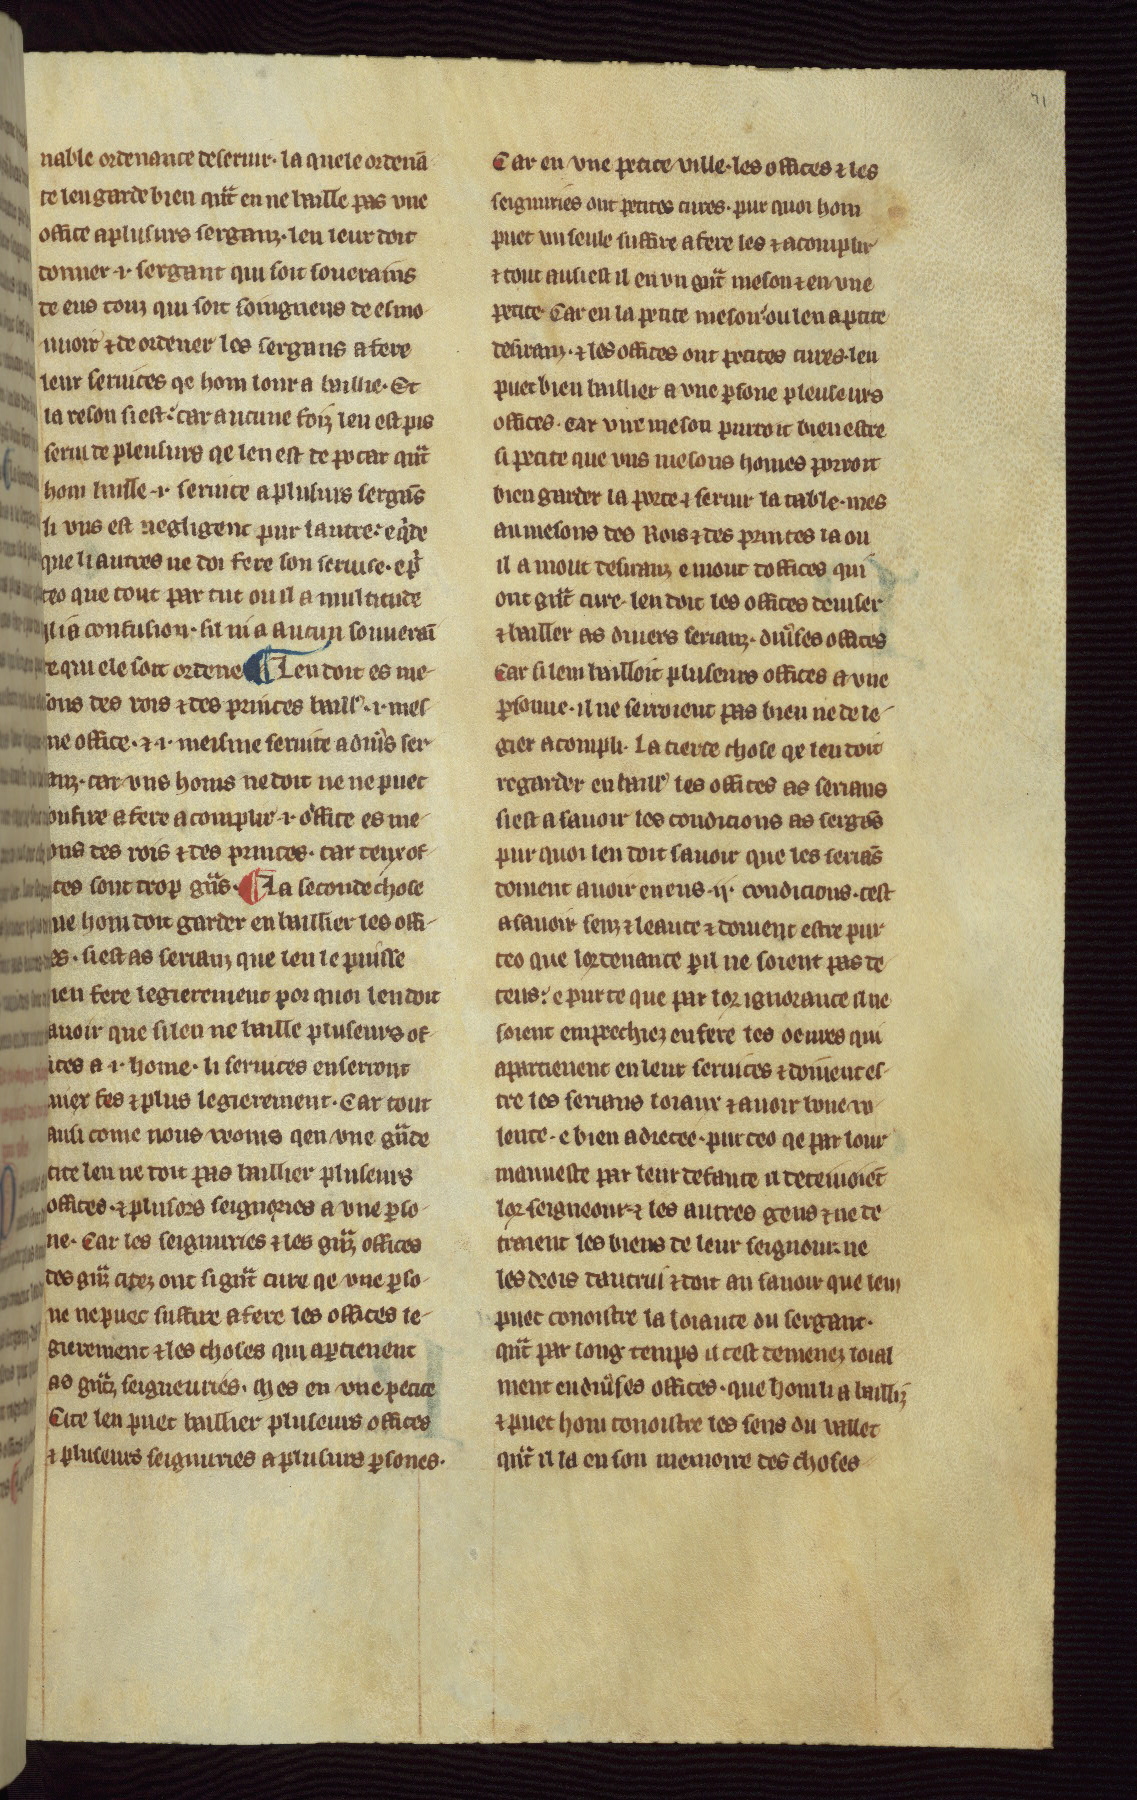 71
nable ordenance de seruir· la quele ordenā
ce len garde bien qn̄t en ne baille pas vne
office a plusurs serganz· len leur doit
donner ·i· sergant qui soit souerains
de eus touz qui soit soingneus de esmo
uuoir ⁊ de ordener les sergans a fere
leur seruices qe hom lour a baillie· Et
la reson si est: car aucune foiz len est pis
serui de pleusurs qe len est de po car qn̄t
hom baille ·i· seruice a plusurs sergās
li vns est negligent pur lautre: e qͥde
que li autres ne doi fere son seruise· e p̄
ceo que tout par tut ou il a multitude
il ia confusion· sil ni a aucun souueraī
e qui ele soit ordene ¶ Len doit es me-
sons des rois ⁊ des princes baillʼ ·i· mes
me office· ⁊ ·i· meisme seruice a diūs ser
anz· car vns homs ne doit ne ne puet
oufire a fere acomplir ·i· office es me-
ons des rois ⁊ des princes· car ceux of-
ces sont trop gͣns· ¶ La seconde chose
ue hom doit garder en baillier les offi-
es· si est as serianz que len le puisse
ien fere legierement por quoi len doit
auoir que si len ne baille pluseurs of
ices a ·i· home· li seruices en seront
miex fes ⁊ plus legierement· Car tout
ausi come nous veons qen vne gn̄de
cite len ne doit pas baillier pluseurs
offices· ⁊ plusors seignories a vne p̱so-
ne· Car les seignuries ⁊ les gn̄z offices
des gn̄z citez ont si gn̄t cure qe vne p̱so-
ne ne puet suffire a fere les offices le-
gierement ⁊ les choses qui ap̱tienent
as gn̄dz seigneuries· Mes en vne petite
Cite len puet baillier pluseurs offices
⁊ pluseurs seignuries a plusurs p̱sones·
Car en vne petite ville· les offices ⁊ les
seignuries ont petites cures· pur quoi hom
puet vn seule suffire a fere les ⁊ acomplir
⁊ tout ausi est il en vn gn̄t meson ⁊ en vne
petite· Car en la petite meson ou len a petite
desiranz· ⁊ les offices ont petites cures· len
puet bien baillier a vne p̱sone pleuseurs
offices· car vne meson purroit bien estre
si petite que vns mesons homes porroit
bien garder la porte ⁊ seruir la table· mes
au mesons des Rois ⁊ des princes la ou
il a mout desiranz e mout doffices qui
ont gn̄t cure· len doit les offices deuiser
⁊ bailler as diuers serianz· diūses offices
Car si lem bailloit pluseurs offices a vne
p̱sonne· il ne serroient pas bien ne de le-
gier acompli· La tierce chose qe len doit
regarder en baillʼ les offices as serians
si est a sauoir les condicions as sergās
pur quoi len doit sauoir que les seriās
doiuent auoir en eus ·ij· condicions· cest
a sauoir senz ⁊ leaute ⁊ doiuent estre pur
ceo que lordenance p̱ il ne soient pas de
ceus: e pur ce que par lor ignorance il ne
soient emprechiez en fere les oeuures qui
apartienent en leur seruices ⁊ doiuent es-
tre les serians loiaux ⁊ auoir bone vo
lente· e bien adrecee· pur ceo qe par lour
mauueste par leur defaute il deceiuoiēt
lor seigneour ⁊ les autres gens ⁊ ne de
traient les biens de leur seignour ne
les drois dautrui ⁊ doit an sauoir que lem
puet conoistre la loiaute du sergant·
qn̄t par long temps il cest demenez loial
ment en diūses offices· que hom li a bailliz
⁊ puet hom conoistre les sens du vallet
qn̄t il la en son memoire des choses